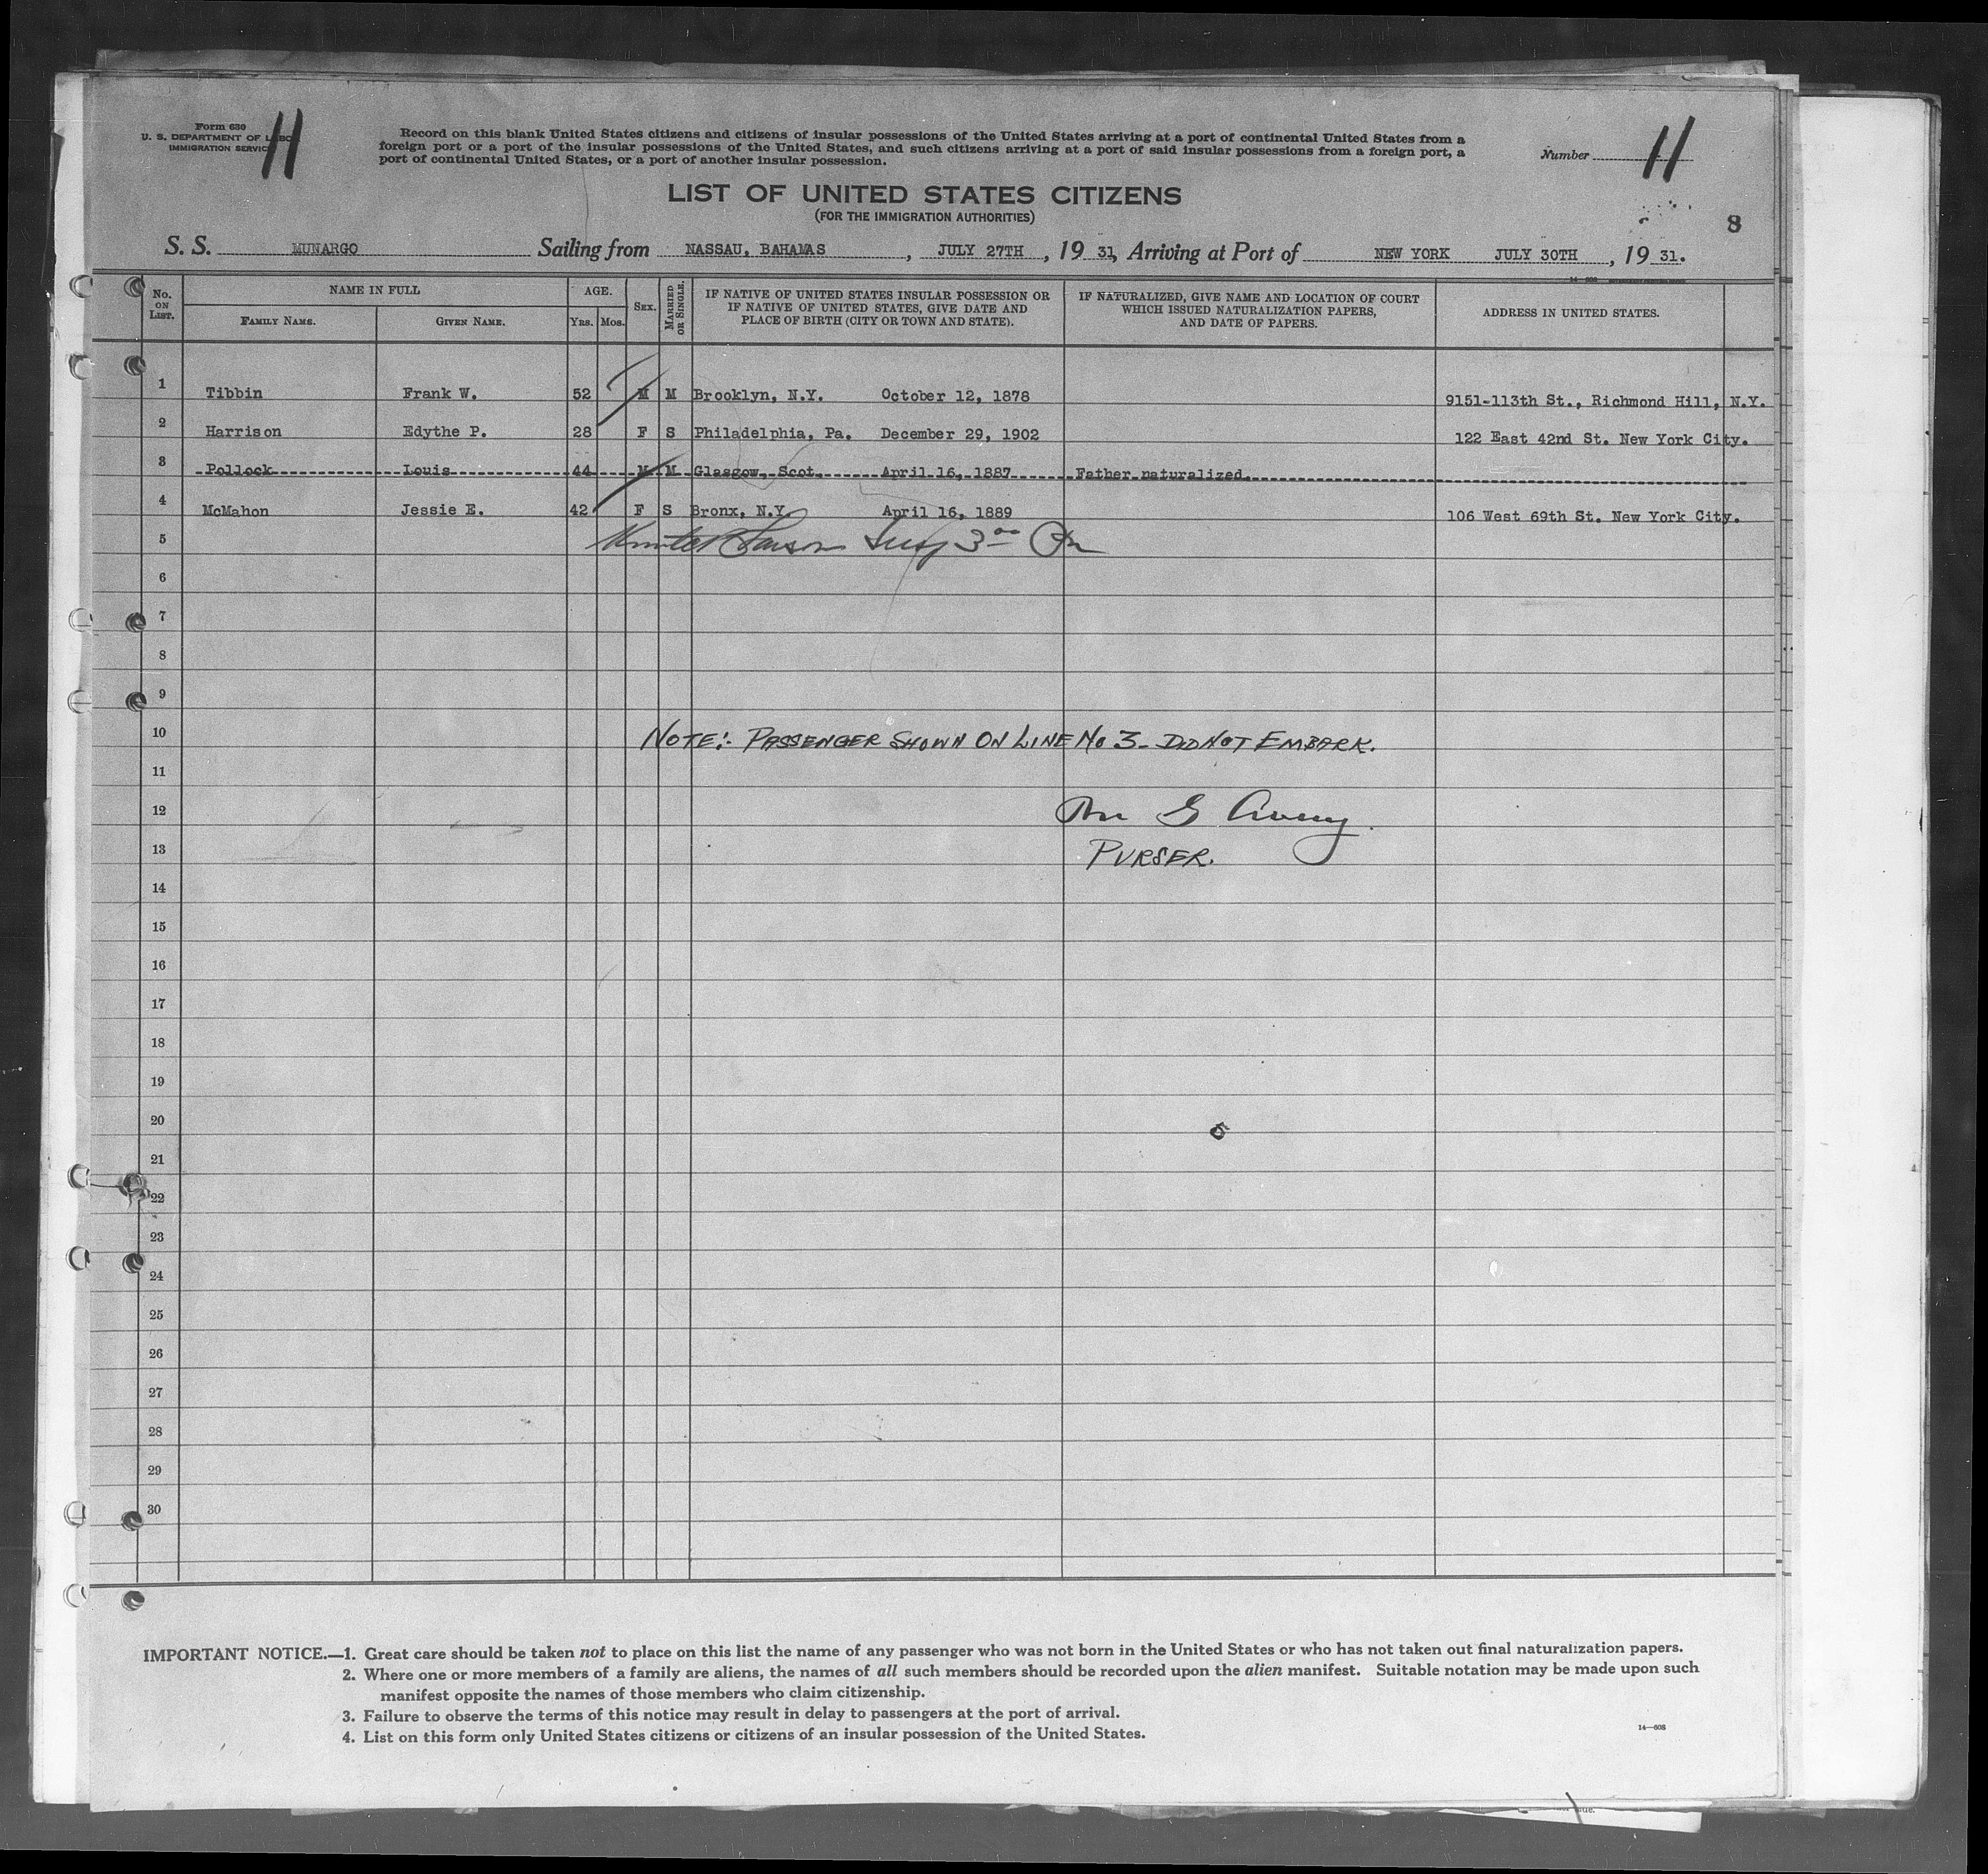 Form 630
U. S. DEPARTMENT OF LABOR
IMMIGRATION SERVICE
11
Record on this blank United States citizens and citizens of insular possessions of the United States arriving at a port of continental United States from a
foreign port or a port of the insular possessions of the United States, and such citizens arriving at a port of said insular possessions from a foreign port, a
port of continental United States, or a port of another insular possession.
Number 11
LIST OF UNITED STATES CITIZENS
(FOR THE IMMIGRATION AUTHORITIES)
8
S. S. MUNARGO Sailing from NASSAU, BAHAMAS, JULY 27TH, 19 31, Arriving at Port of NEW YORK JULY 30TH, 19 31.
14-608
No. ON LIST. NAME IN FULL FAMILY NAME. GIVEN NAME. AGE. YRS. MOS. SEX. MARRIED OR SINGLE. IF NATIVE OF UNITED STATES INSULAR POSSESSION OR IF NATIVE OF UNITED STATES, GIVE DATE AND PLACE OF BIRTH (CITY OR TOWN AND STATE). IF NATURALIZED, GIVE NAME AND LOCATION OF COURT WHICH ISSUED NATURALIZATION PAPERS, AND DATE OF PAPERS. ADDRESS IN UNITED STATES.
1 Tibbin Frank W. 52 M M Brooklyn, N.Y. October 12, 1878 9151-113th St., Richmond Hill, N.Y.
2 Harrison Edythe P. 28 F S Philadelphia, Pa. December 29, 1902 122 East 42nd St. New York City.
3 Pollock Louis 44 M M Glasgow, Scot. April 16, 1887 Father naturalized.
4 McMahon Jessie E. 42 F S Bronx, N.Y. April 16, 1889 106 West 69th St. New York City.
5
6
7
8
9
10 NOTE:- PASSENGER SHOWN ON LINE No 3 - DID NOT EMBARK.
11
12 Avery
13 PURSER.
14
15
16
17
18
19
20
21
22
23
24
25
26
27
28
29
30
IMPORTANT NOTICE.—1. Great care should be taken not to place on this list the name of any passenger who was not born in the United States or who has not taken out final naturalization papers.
2. Where one or more members of a family are aliens, the names of all such members should be recorded upon the alien manifest. Suitable notation may be made upon such
manifest opposite the names of those members who claim citizenship.
3. Failure to observe the terms of this notice may result in delay to passengers at the port of arrival.
4. List on this form only United States citizens or citizens of an insular possession of the United States.
14—608